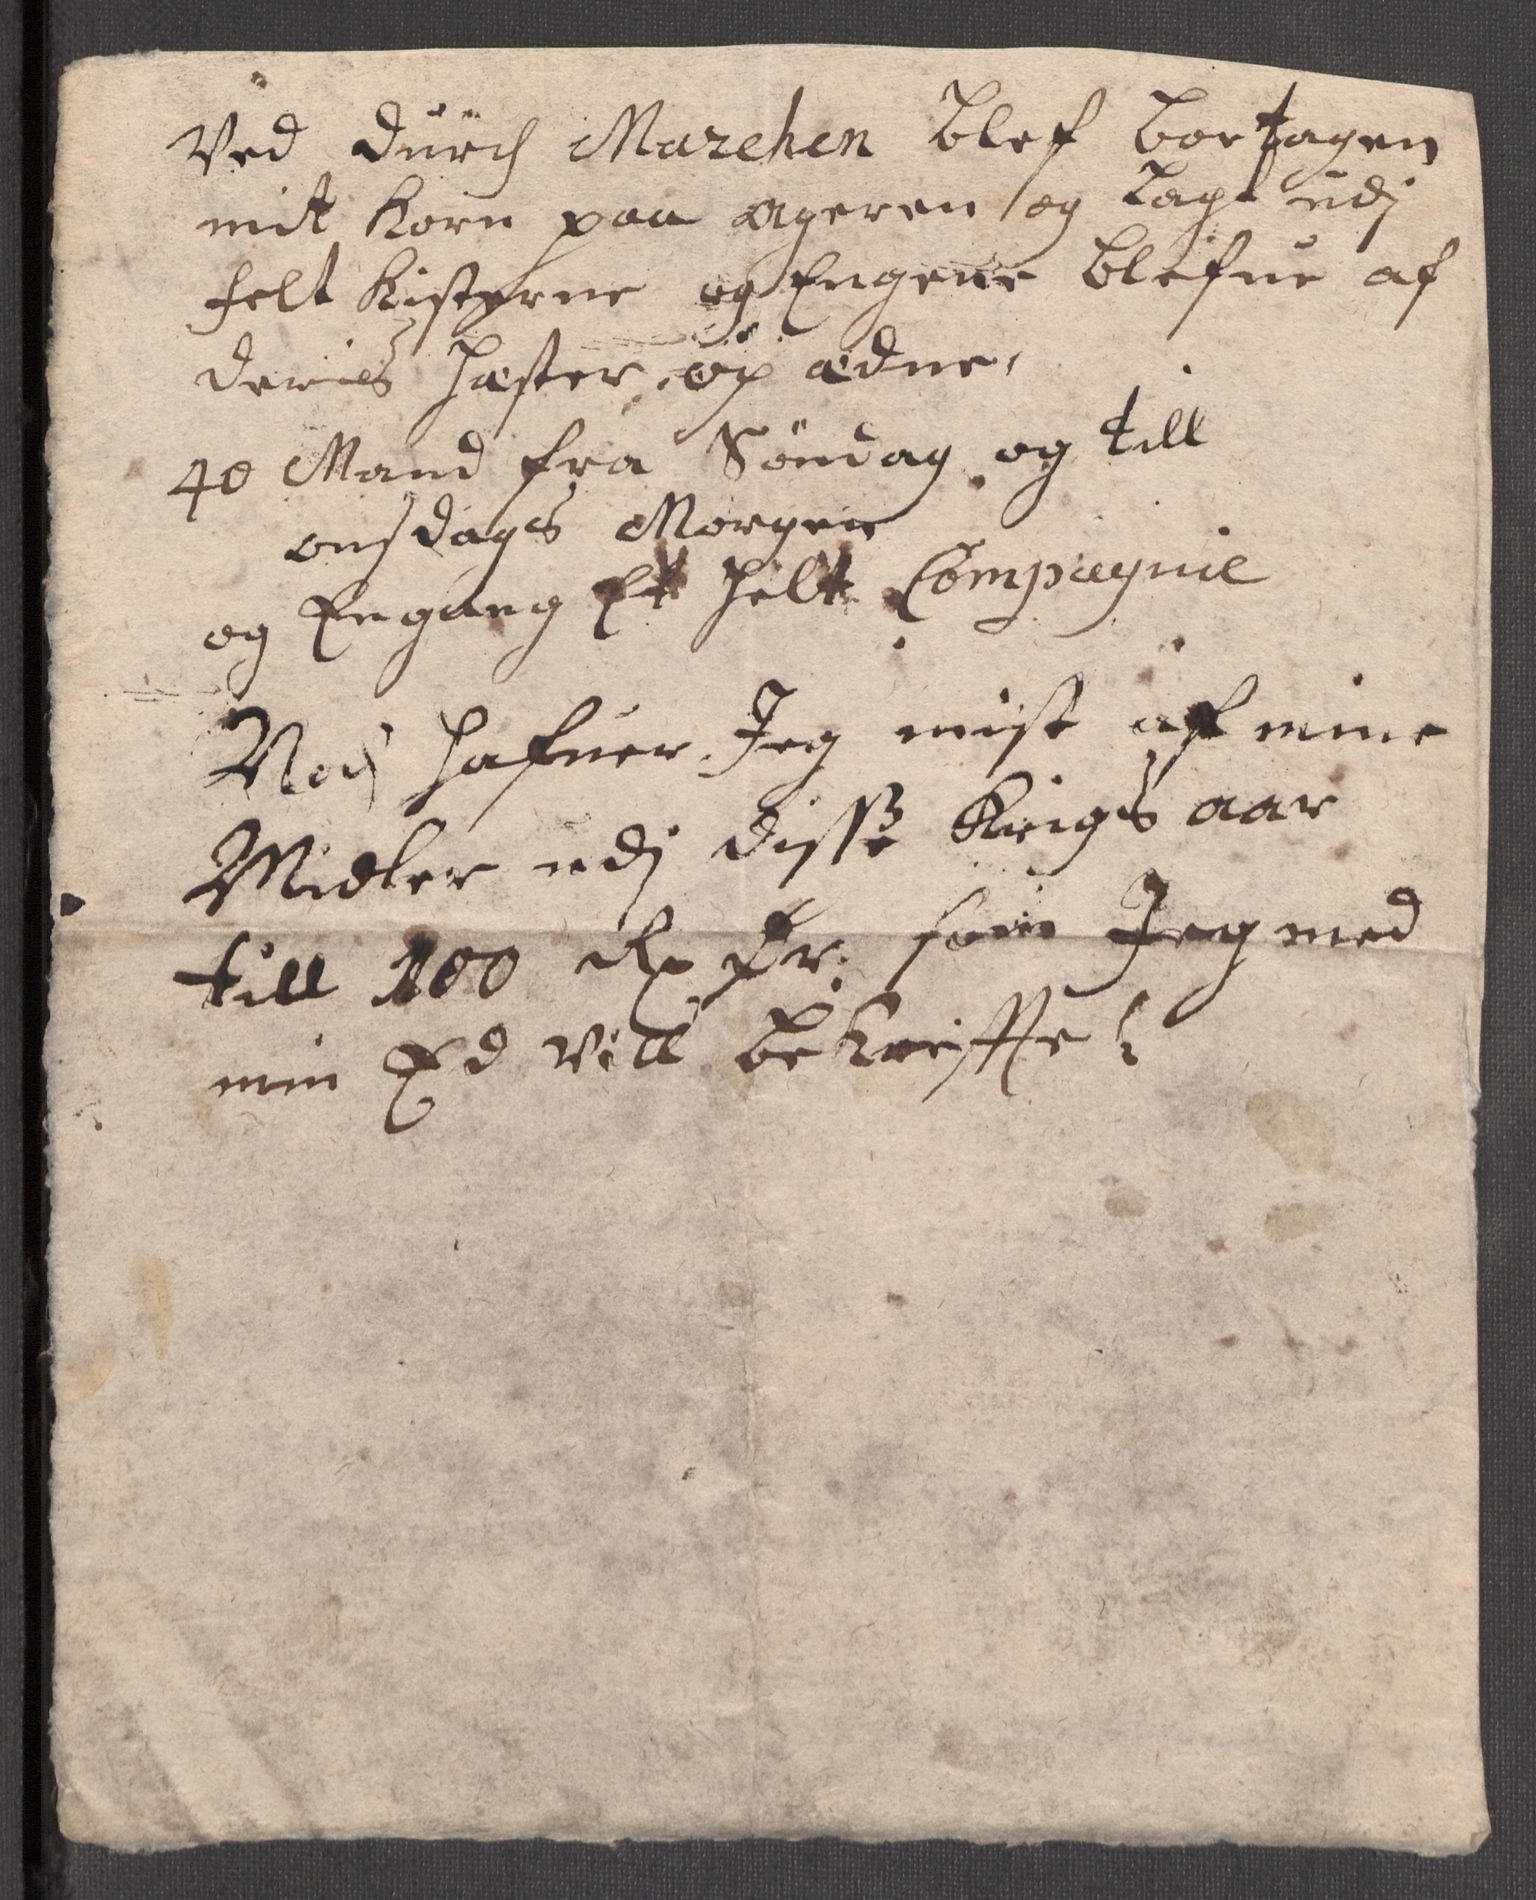 Ved dürch Marchen blef bortagen
mit Korn paa ageren og lagt udj
felt Kisterne og Engene blefue af
deris hæster op ædne,
40 Mand fra Söndag og till
onsdags Morgen
og Engang Et helt Compagnie
Noch hafuer Jeg mist af mine
Midler udj disse Krigs aar
till 100 Rdr som Jeg med
min Ed vill bekreffte